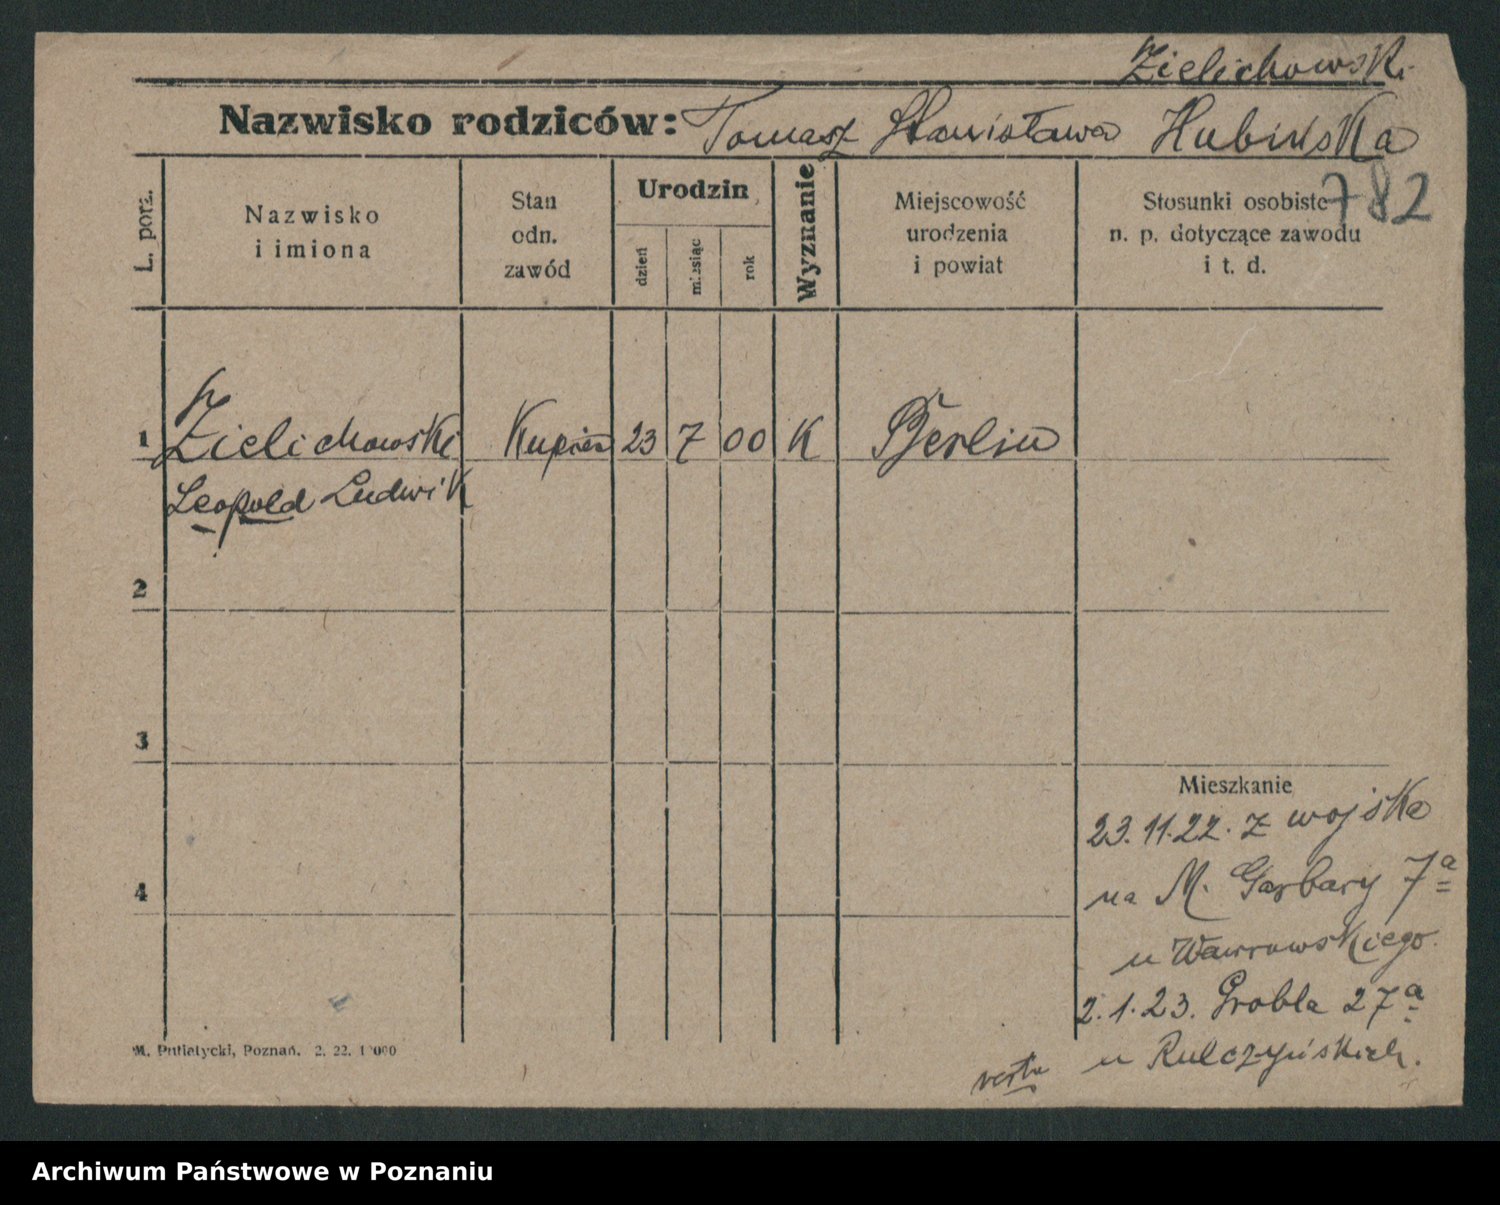 Zielichowski
Nazwisko rodziców: Tomasz Stanisława Hubińska
782
L. porz.
Nazwisko i imiona
Stan odn. zawód
Urodzin
dzień
miesiąc
rok
Wyznanie
Miejscowość urodzenia i powiat
Stosunki osobiste n. p. dotyczące zawodu i t. d.
1 Zielichowski Kupiec 23 7 00 K Berlin
Leopold Ludwik
2
3
Mieszkanie
23.11.22. z wojska
4
na M. Garbary 7a
u Wawrowskiego.
2.1.23. Grobla 27a
u Rulczyńskich.
M. Putiatycki, Poznań. 2. 22. 10000
Archiwum Państwowe w Poznaniu